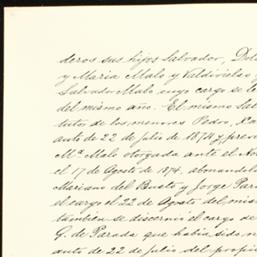 deros sus hijos Salvador, Dolo
y Maria Malo y Valdivielso y
Salvador Malo cuyo cargo se le
del mismo año. El mismo Sal
tutor de los menores Pedro,
auto de 22 de julio de 1874 y, prev
Mª. Malo otorgada ante el No
el 17 de Agosto de 1874. abonandol
Mariano del Busto y Jorge Par
el cargo el 22 de Agosto del mis
tambien se discernió el cargo de
G. de Parada que habia sido n
auto de 22 de julio del propio